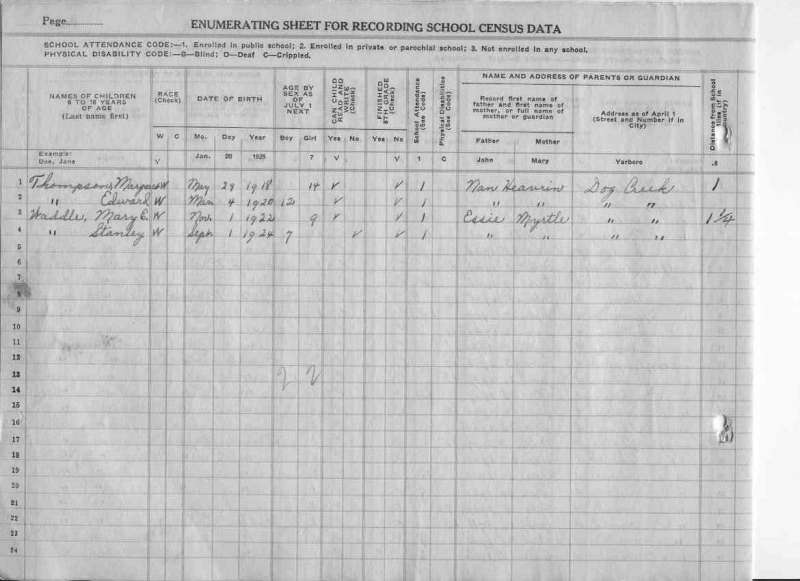 Page
ENUMERATING SHEET FOR RECORDING SCHOOL CENSUS DATA
SCHOOL ATTENDANCE CODE:—1. Enrolled in public school; 2. Enrolled in private or parochial school; 3. Not enrolled in any school.
PHYSICAL DISABILITY CODE:—B—Blind; D—Deaf C—Crippled.
NAMES OF CHILDREN 6 TO 18 YEARS OF AGE (Last name first)
RACE (Check)
DATE OF BIRTH
AGE BY SEX AS OF JULY 1 NEXT
CAN CHILD READ AND WRITE (Check)
FINISHED 8TH GRADE (Check)
School Attendance (See Code)
Physical Disabilities (See Code)
NAME AND ADDRESS OF PARENTS OR GUARDIAN
Record first name of father and first name of mother, or full name of mother or guardian
Address as of April 1 (Street and Number if in City)
Distance from School (if in country)
W C Mo. Day Year Boy Girl Yes No Yes No Father Mother
Example: Doe, Jane V Jan. 20 1925 7 V V 1 C John Mary Yarboro .8
1 W May 1918 14 V V 1 Dog Creek 1
2 " Edward W 4 1920 12 V V 1 " " " "
3 Waddle, Mary E. W Nov. 1 1922 9 V V 1 Essie Myrtle " " 1 1/4
4 " Stanley W Sept. 1 1924 7 V V 1 " " " "
5
6
7
8
9
10
11
12
13
14
15
16
17
18
19
20
21
22
23
24